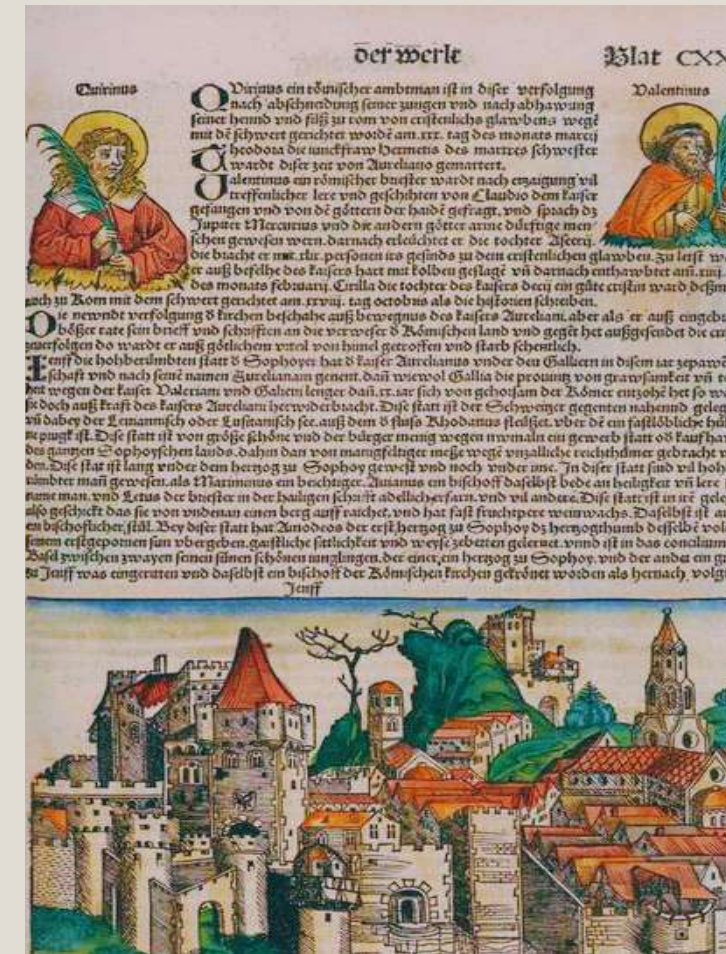 der werlt
Blat CXX
Quirinus
Valentinus
QVirinus ein römischer ambtman ist in diser verfolgung
nach abschneidung seiner zungen vnd nach abhawung
seiner hennd vnd füß zu rom von cristenlichs glawbens wegē
mit dē schwert gerichtet wordē am .xxx. tag des monats marcij
Theodora die iunckfraw Hermetis des martres schwester
wardt diser zeit von Aureliano gemartert.
Ualentinus ein römischer briester wardt nach erzaigung vil
treffenlicher lere vnd geschihten von Claudio dem kaiser
gefangen vnd von dē göttern der haidē gefragt. vnd sprach dz
Jupiter Mercurius vnd die andern götter arme dürftige men
schen gewesen wern. darnach erleüchtet er die tochter Asterij.
die bracht er mit .xlv. personen irs gesinds zu dem cristenlichen glawben. Zu letst
er auß befelhe des kaisers hart mit kolben geslagē vñ darnach enthawbtet am
des monats februarij. Cirilla die tochter des kaisers decij ein gůte cristin ward
auch zu Rom mit dem schwert gerichtet am .xxviij. tag octobris als die historien schreiben.
Die newndt verfolgung d̕ kirchen beschahe auß bewegnus des kaisers Aureliani. aber als er auß eingebu
bößer rate sein brieff vnd schrifften an die verweser d̕ Römischen land vnd gegēt het außgesendet die cri
zuuerfolgen do wardt er auß götlichem vrteil von himel getroffen vnd starb schentlich.
Jenff die hohberümbten statt d̕ Sophoyer hat d̕ kaiser Aurelianus vnder den Galliern in disem iar
schaft vnd nach seinē namen Aurelianam genent. dañ wiewol Gallia die prouintz von grawsamkeit vñ
heit wegen der kaiser Valeriani vnd Galieni lenger dañ .xx. iar sich von gehorsam der Römer entzohē het so
sie doch auß kraft des kaisers Aureliani herwiderbracht. Dise statt ist der Schweitzer gegenten nahennd
vñ dabey der Lemannisch oder Lusitanisch see. auß dem d̕ fluß Rhodanus fleüßet. vber dē ein fastlöbliche
ne prugk ist. Dise statt ist von größe schöne vnd der bürger menig wegen nwmaln ein gewerb statt oď kaufhaus
des gantzen Sophoyschen lands. dahin dan von manigfeltiger meße wegē vnzalliche reichthümer gebracht
den. Dise stat ist lang vnder dem hertzog zu Sophoy gewest vnd noch vnder ime. In diser statt sind vil hoh
rümbter mañ gewesen. als Maximinus ein beichtiger. Auianus ein bischoff daselbst bede an heiligkeit vñ lere
same man. vnd Letus der briester in der hailigen schrifft adellicherfarn. vnd vil andere. Dise statt ist in irē
also geschickt das sie von vndenan einen berg auff raichet. vnd hat fast fruchtpere weinwachs. Daselbst ist
ein bischoflicher stůl. Bey diser statt hat Amodeos der erst hertzog zu Sophoy dz hertzogthumb desselbē
seinem erstgepornen sun vbergeben. gaistliche sitlichkeit vnd weyse zebetten gelernet. vnnd ist in das concilium
Basel zwischen zwayen seinen sünen schönen iunglingen. der einer ein hertzog zu Sophoy. vnd der ander ein
zu Jenff was eingeraten vnd daselbst ein bischoff der Römischen kirchen gekrönet worden als hernach volg
Jenff